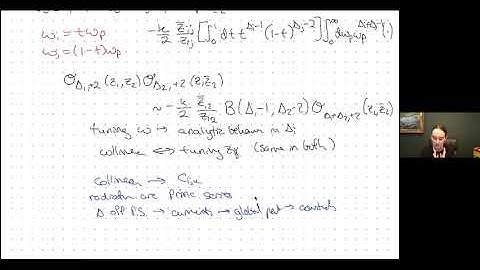 ωi = tωp
ωj = (1-t)ωp
-κ/2 z̄ij/zij [∫₀¹ dt t^{Δi-1} (1-t)^{Δj-2}] ∫₀^∞ dωp ωp
O_{Δ1,+2}(z1,z̄1) O_{Δ2,+2}(z2,z̄2)
~ -κ/2 z̄12/z12 B(Δ1-1, Δ2-1) O_{Δ1+Δ2,+2}(z2,z̄2)
tuning ω → analytic behavior in Δi
collinear ⟺ tuning zij (same in both)
collinear →
radiation are Princ series
Δ off P.S. → currents → global part → constraints